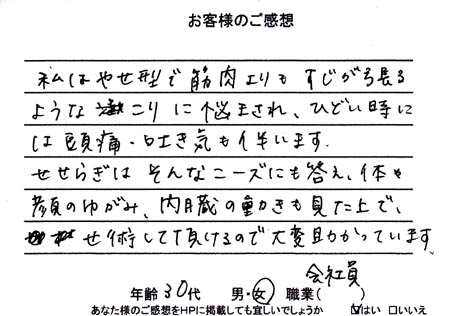 お客様のご感想
私はやせ型で筋肉よりも すじが弓長る
ような こりに悩まされ、ひどい時に
は頭痛・吐き気も伴います。
せせらぎは そんなニーズにも答え、体や
顔のゆがみ、内臓の動きも見た上で、
せ術して頂けるので大変助かっています。
会社員
年齢 30代 男・女 職業( )
あなた様のご感想をHPに掲載しても宜しいでしょうか ☑はい □いいえ